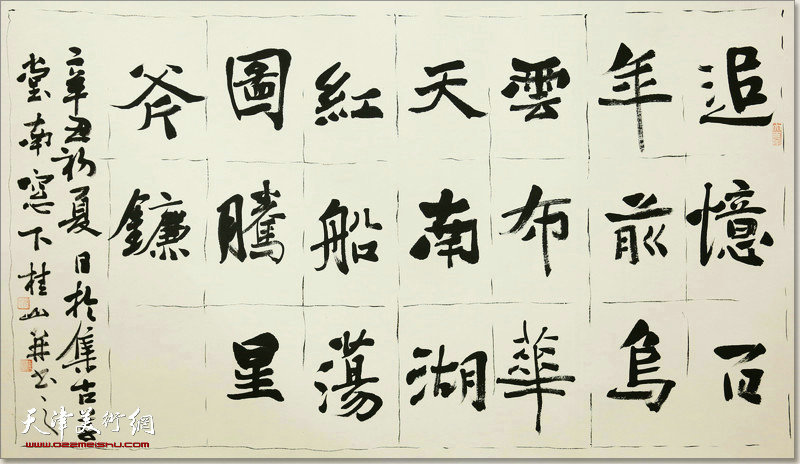 追憶百
年前烏
雲布華
天南湖
紅船蕩
圖騰星
斧鐮
辛丑初夏日於集古
堂南窓下桂山并書之
天津美術網
www.022meishu.com